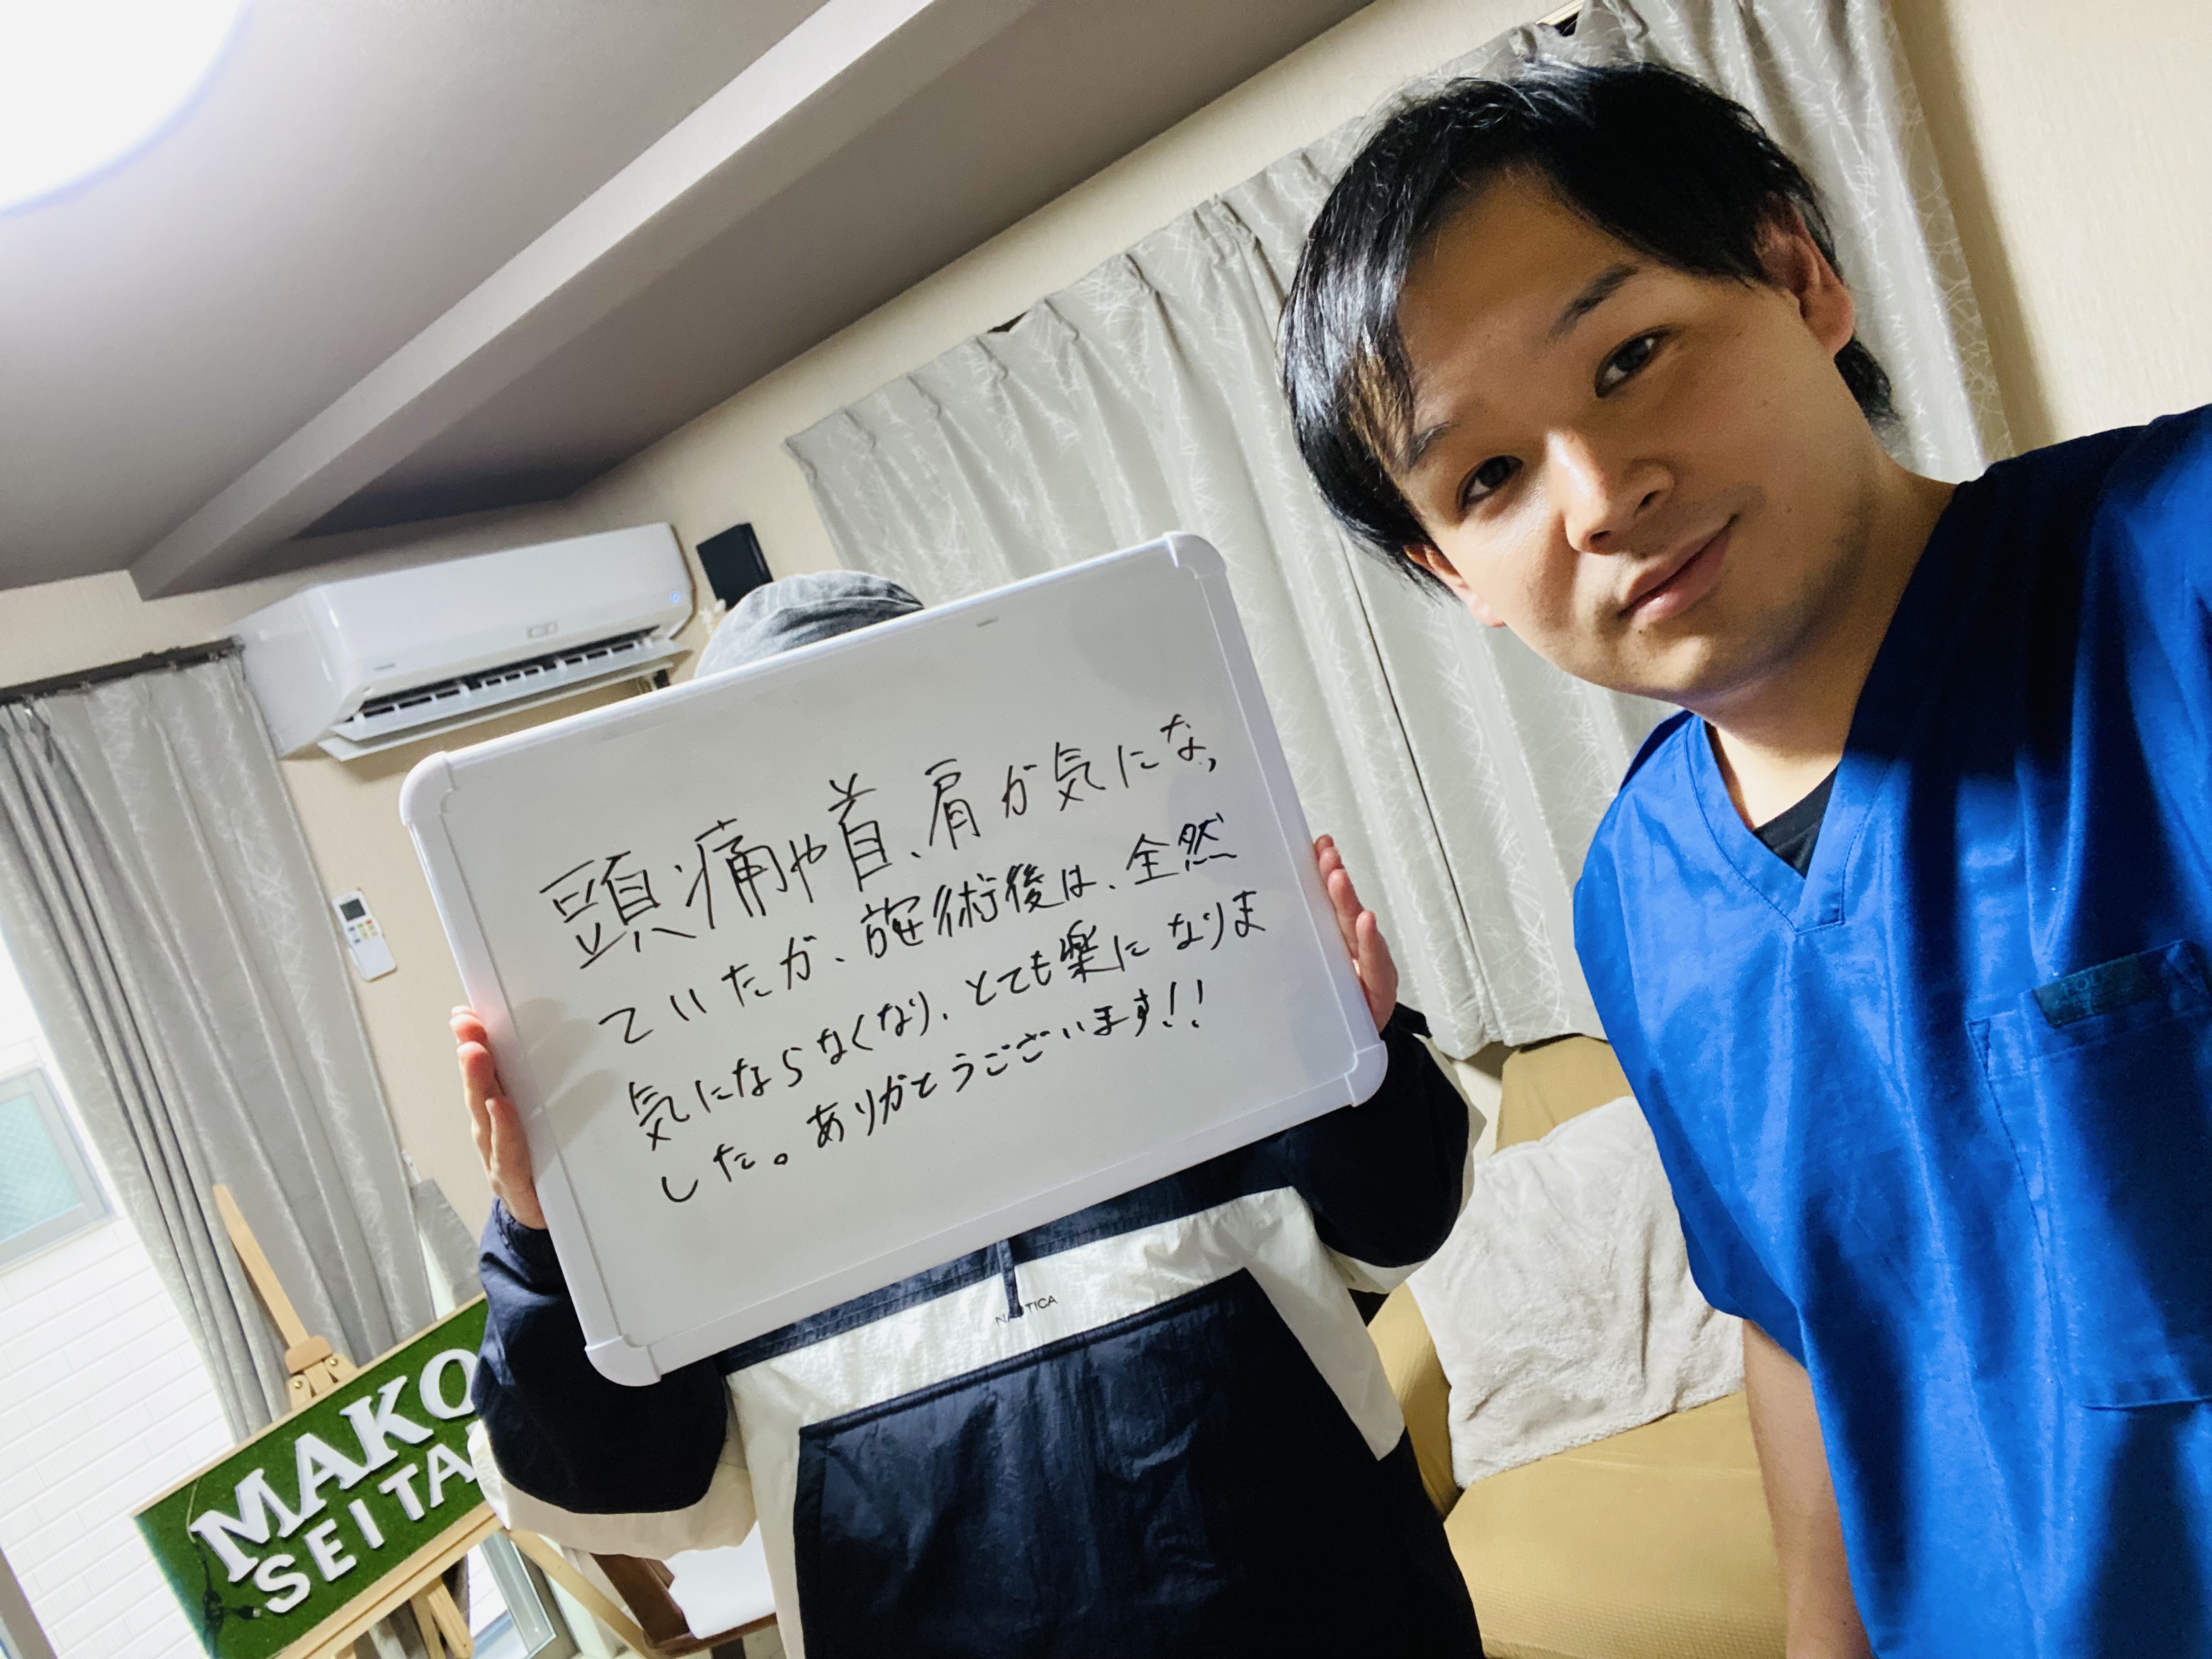 頭痛や首、肩が気になっ
ていたが、施術後は、全然
気にならなくなり、とても楽になりま
した。ありがとうございます!!
NAUTICA
MAKO
SEITA